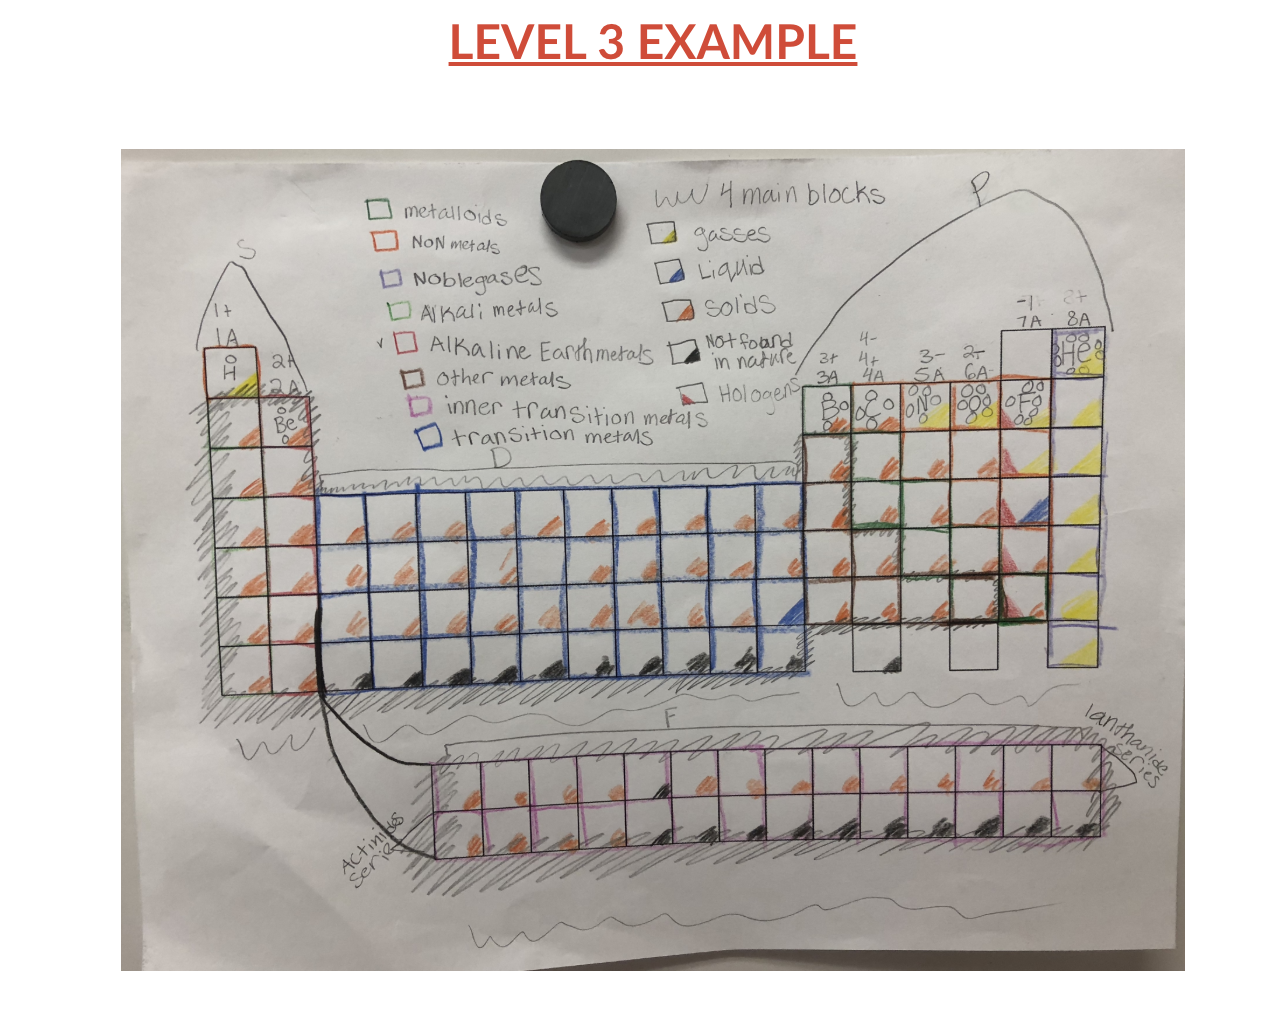 LEVEL 3 EXAMPLE
metalloids
NON metals
Noblegases
Alkali metals
v Alkaline Earthmetals
Other metals
inner transition metals
transition metals
4 main blocks
gasses
Liquid
Solids
Not found
in nature
Hologens
S
P
1+
1A
2+
2A
H
Be
D
3+
3A
4-
4+
4A
3-
5A
2-
6A
-1
7A
8A
He
B
C
N
O
F
F
lanthanide
series
Actinide
series